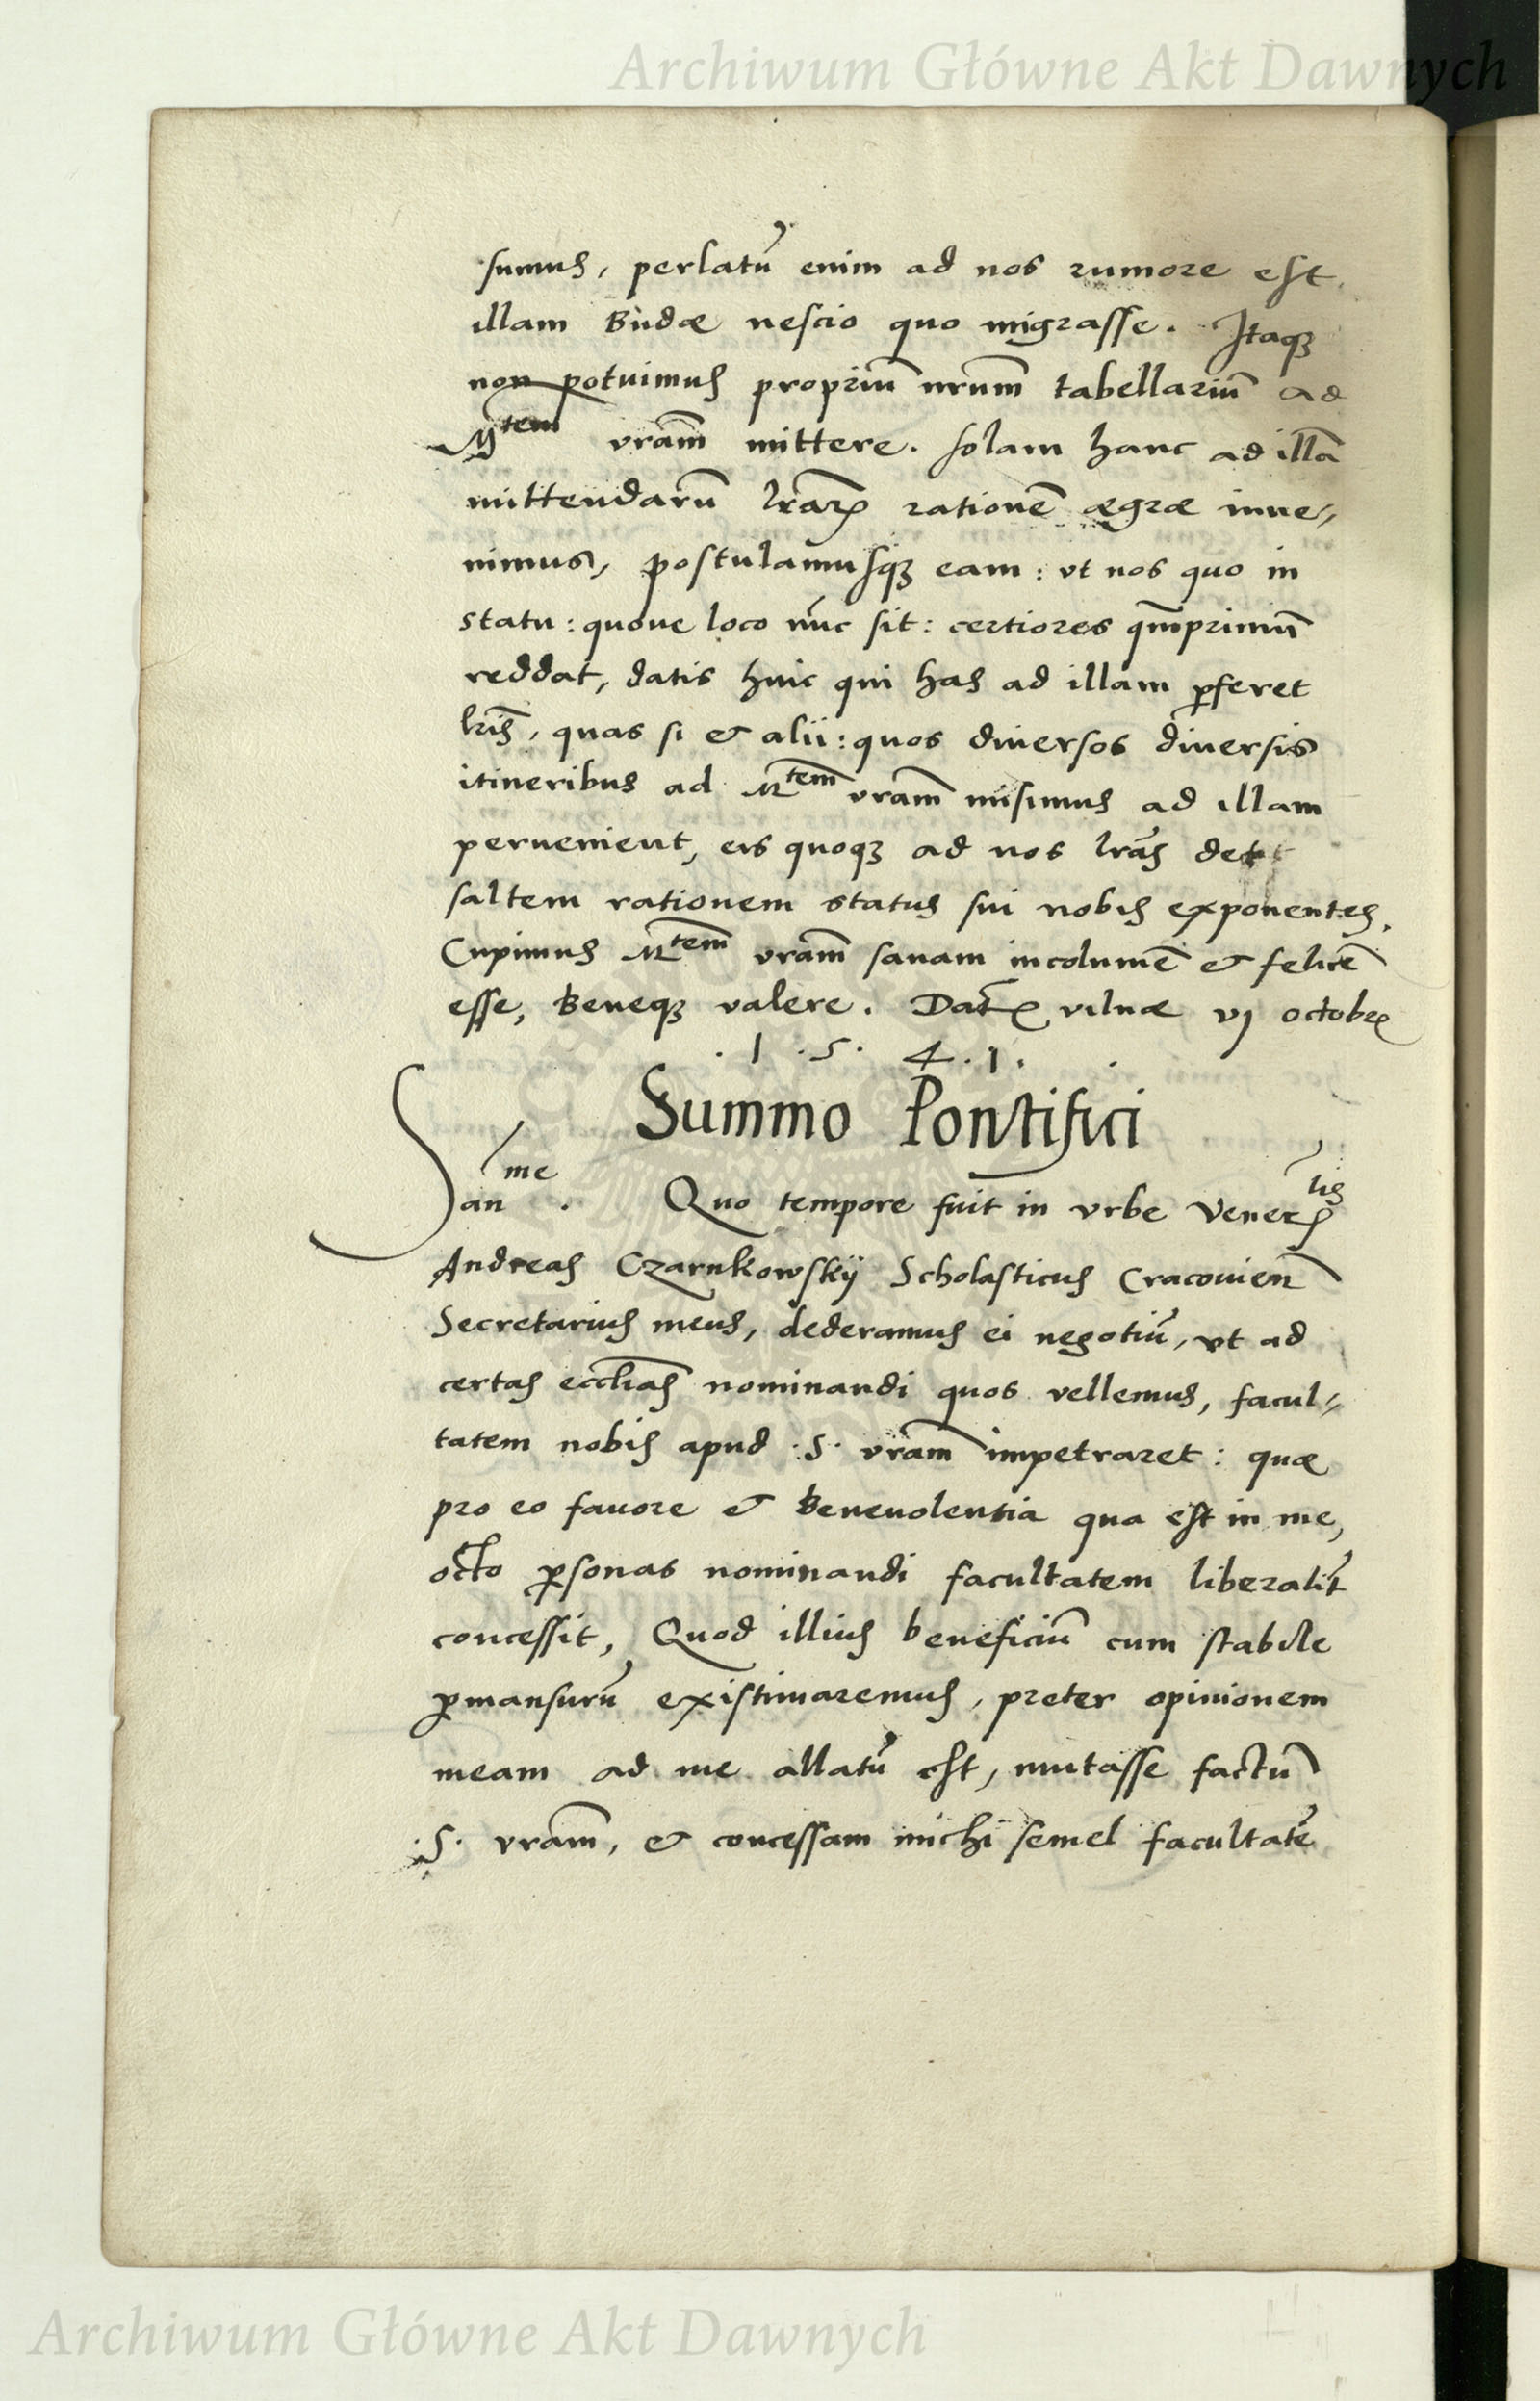 Archiwum Główne Akt Dawnych
sumus, perlatũ enim ad nos rumore est
illam Budæ nescio quo migrasse. Itaqꝫ
non potuimus propriũ nrum̃ tabellariũ ad
Mtem vram̃ mittere. solam hanc ad illã
mittendarũ lrarꝝ rationẽ ægræ inue-
nimus, postulamusqꝫ eam: vt nos quo in
statu: quoue loco nũc sit: certiores qm̃primũ
reddat, datis huic qui has ad illam ꝑferet
lris̃, quas si & alii: quos diuersos diuersis
itineribus ad Mtem̃ vram̃ misimus ad illam
peruenient, eis quoqꝫ ad nos lras̃ det
saltem rationem status sui nobis exponentes.
Cupimus Mtem̃ vram̃ sanam incolumẽ & felicẽ
esse, Beneqꝫ valere. Datꝭ vilnæ vj octobꝭ
.1.5.4.1.
Summo Pontifici
Sanme. Quo tempore fuit in vrbe Venerꝭlis
Andreas Czarnkowskÿ Scholasticus Cracouien̄
Secretarius meus, dederamus ei negotiũ, vt ad
certas eccl̃ias nominandi quos vellemus, facul-
tatem nobis apud .S. vram̃ impetraret: quæ
pro eo fauore & Beneuolentia qua est in me,
octo ꝑsonas nominandi facultatem liberalit̃
concessit, Quod illius beneficiũ cum stabile
ꝑmansurũ existimaremus, preter opinionem
meam ad me allatũ est, mutasse factũ
.S. vram̃, & concessam michi semel facultatẽ
Archiwum Główne Akt Dawnych